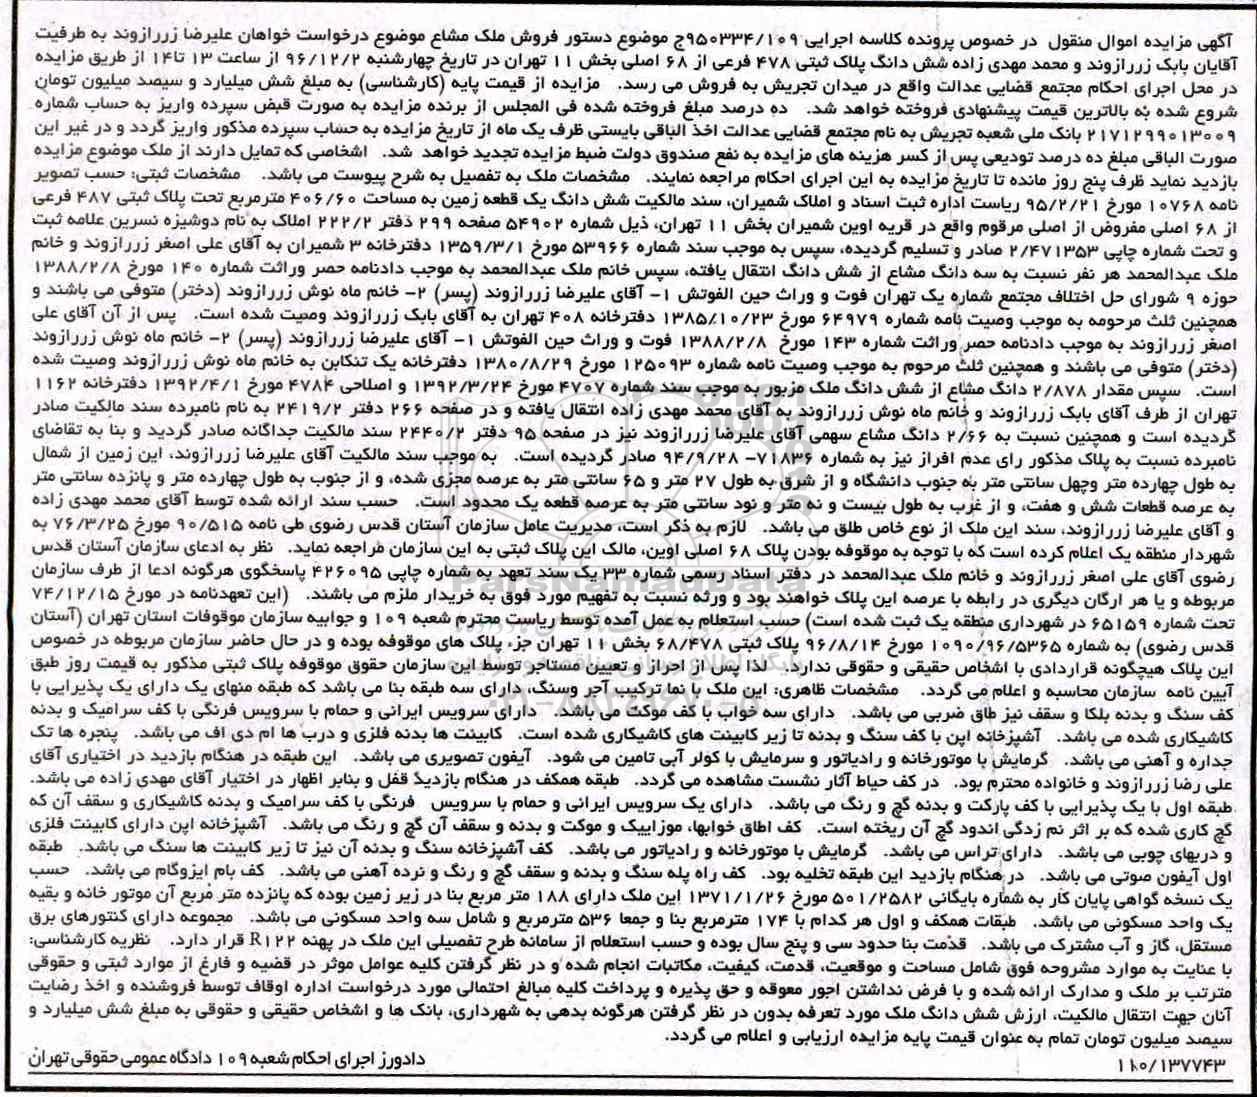 آگهی مزایده اموال منقول در خصوص پرونده کلاسه اجرایی ۹۵۰۳۳۴/۱۰۹ج موضوع دستور فروش ملک مشاع موضوع درخواست خواهان علیرضا زررازوند به طرفیت
آقایان بابک زررازوند و محمد مهدی زاده شش دانگ پلاک ثبتی ۴۷۸ فرعی از ۶۸ اصلی بخش ۱۱ تهران در تاریخ چهارشنبه ۹۶/۱۲/۲ از ساعت ۱۳ تا۱۴ از طریق مزایده
در محل اجرای احکام مجتمع قضایی عدالت واقع در میدان تجریش به فروش می رسد. مزایده از قیمت پایه (کارشناسی) به مبلغ شش میلیارد و سیصد میلیون تومان
شروع شده به بالاترین قیمت پیشنهادی فروخته خواهد شد. ده درصد مبلغ فروخته شده فی المجلس از برنده مزایده به صورت قبض سپرده واریز به حساب شماره
۲۱۷۱۲۹۹۰۱۳۰۰۹ بانک ملی شعبه تجریش به نام مجتمع قضایی عدالت اخذ الباقی بایستی ظرف یک ماه از تاریخ مزایده به حساب سپرده مذکور واریز گردد و در غیر این
صورت الباقی مبلغ ده درصد تودیعی پس از کسر هزینه های مزایده به نفع صندوق دولت ضبط مزایده تجدید خواهد شد. اشخاصی که تمایل دارند از ملک موضوع مزایده
بازدید نماید ظرف پنج روز مانده تا تاریخ مزایده به این اجرای احکام مراجعه نمایند. مشخصات ملک به تفصیل به شرح پیوست می باشد. مشخصات ثبتی: حسب تصویر
نامه ۱۰۷۶۸ مورخ ۹۵/۲/۲۱ ریاست اداره ثبت اسناد و املاک شمیران، سند مالکیت شش دانگ یک قطعه زمین به مساحت ۴۰۶/۶۰ مترمربع تحت پلاک ثبتی ۴۸۷ فرعی
از ۶۸ اصلی مفروض از اصلی مرقوم واقع در قریه اوین شمیران بخش ۱۱ تهران، ذیل شماره ۵۴۹۰۲ صفحه ۲۹۹ دفتر ۲۲۲/۲ املاک به نام دوشیزه نسرین علامه ثبت
و تحت شماره چاپی ۲/۴۷۱۳۵۳ صادر و تسلیم گردیده، سپس به موجب سند شماره ۵۳۹۶۶ مورخ ۱۳۵۹/۳/۱ دفترخانه ۳ شمیران به آقای علی اصغر زررازوند و خانم
ملک عبدالمحمد هر نفر نسبت به سه دانگ مشاع از شش دانگ انتقال یافته، سپس خانم ملک عبدالمحمد به موجب دادنامه حصر وراثت شماره ۱۴۰ مورخ ۱۳۸۸/۲/۸
حوزه ۹ شورای حل اختلاف مجتمع شماره یک تهران فوت و وراث حین الفوتش ۱- آقای علیرضا زررازوند (پسر) ۲- خانم ماه نوش زررازوند (دختر) متوفی می باشند و
همچنین ثلث مرحومه به موجب وصیت نامه شماره ۶۴۹۷۹ مورخ ۱۳۸۵/۱۰/۲۳ دفترخانه ۴۰۸ تهران به آقای بابک زررازوند وصیت شده است. پس از آن آقای علی
اصغر زررازوند به موجب دادنامه حصر وراثت شماره ۱۴۳ مورخ ۱۳۸۸/۲/۸ فوت و وراث حین الفوتش ۱- آقای علیرضا زررازوند (پسر) ۲- خانم ماه نوش زررازوند
(دختر) متوفی می باشند و همچنین ثلث مرحوم به موجب وصیت نامه شماره ۱۲۵۰۹۳ مورخ ۱۳۸۰/۸/۲۹ دفترخانه یک تنکابن به خانم ماه نوش زررازوند وصیت شده
است. سپس مقدار ۲/۸۷۸ دانگ مشاع از شش دانگ ملک مزبور به موجب سند شماره ۴۷۰۷ مورخ ۱۳۹۲/۳/۲۴ و اصلاحی ۴۷۸۴ مورخ ۱۳۹۲/۴/۱ دفترخانه ۱۱۶۲
تهران از طرف آقای بابک زررازوند و خانم ماه نوش زررازوند به آقای محمد مهدی زاده انتقال یافته و در صفحه ۲۶۶ دفتر ۲۴۱۹/۲ به نام نامبرده سند مالکیت صادر
گردیده است و همچنین نسبت به ۲/۶۶ دانگ مشاع سهمی آقای علیرضا زررازوند نیز در صفحه ۹۵ دفتر ۲۴۴۰/۲ سند مالکیت جداگانه صادر گردید و بنا به تقاضای
نامبرده نسبت به پلاک مذکور رای عدم افراز نیز به شماره ۷۱۸۳۶- ۹۴/۹/۲۸ صادر گردیده است. به موجب سند مالکیت آقای علیرضا زررازوند، این زمین از شمال
به طول چهارده متر وچهل سانتی متر به جنوب دانشگاه و از شرق به طول ۲۷ متر و ۶۵ سانتی متر به عرصه مجزی شده، و از جنوب به طول چهارده متر و پانزده سانتی متر
به عرصه قطعات شش و هفت، و از غرب به طول بیست و نه متر و نود سانتی متر به عرصه قطعه یک محدود است. حسب سند ارائه شده توسط آقای محمد مهدی زاده
و آقای علیرضا زررازوند، سند این ملک از نوع خاص طلق می باشد. لازم به ذکر است، مدیریت عامل سازمان آستان قدس رضوی طی نامه ۹۰/۵۱۵ مورخ ۷۶/۳/۲۵ به
شهردار منطقه یک اعلام کرده است که با توجه به موقوفه بودن پلاک ۶۸ اصلی اوین، مالک این پلاک ثبتی به این سازمان مراجعه نماید. نظر به ادعای سازمان آستان قدس
رضوی آقای علی اصغر زررازوند و خانم ملک عبدالمحمد در دفتر اسناد رسمی شماره ۳۳ یک سند تعهد به شماره چاپی ۴۲۶۰۹۵ پاسخگوی هرگونه ادعا از طرف سازمان
مربوطه و یا هر ارگان دیگری در رابطه با عرصه این پلاک خواهند بود و ورثه نسبت به تفهیم مورد فوق به خریدار ملزم می باشند. (این تعهدنامه در مورخ ۷۴/۱۲/۱۵
تحت شماره ۶۵۱۵۹ در شهرداری منطقه یک ثبت شده است) حسب استعلام به عمل آمده توسط ریاست محترم شعبه ۱۰۹ و جوابیه سازمان موقوفات استان تهران (آستان
قدس رضوی) به شماره ۱۰۹۰/۹۶/۵۳۶۵ مورخ ۹۶/۸/۱۴ پلاک ثبتی ۶۸/۴۷۸ بخش ۱۱ تهران جزء پلاک های موقوفه بوده و در حال حاضر سازمان مربوطه در خصوص
این پلاک هیچگونه قراردادی با اشخاص حقیقی و حقوقی ندارد. لذا پس از احراز و تعیین مستاجر توسط این سازمان حقوق موقوفه پلاک ثبتی مذکور به قیمت روز طبق
آیین نامه سازمان محاسبه و اعلام می گردد. مشخصات ظاهری: این ملک با نما ترکیب آجر وسنگ، دارای سه طبقه بنا می باشد که طبقه منهای یک دارای یک پذیرایی با
کف سنگ و بدنه بلکا و سقف نیز طاق ضربی می باشد. دارای سه خواب با کف موکت می باشد. دارای سرویس ایرانی و حمام با سرویس فرنگی با کف سرامیک و بدنه
کاشیکاری شده می باشد. آشپزخانه اپن با کف سنگ و بدنه تا زیر کابینت های کاشیکاری شده است. کابینت ها بدنه فلزی و درب ها ام دی اف می باشد. پنجره ها تک
جداره و آهنی می باشد. گرمایش با موتورخانه و رادیاتور و سرمایش با کولر آبی تامین می شود. آیفون تصویری می باشد. این طبقه در هنگام بازدید در اختیاری آقای
علی رضا زررازوند و خانواده محترم بود. در کف حیاط آثار نشست مشاهده می گردد. طبقه همکف در هنگام بازدید قفل و بنابر اظهار در اختیار آقای مهدی زاده می باشد.
طبقه اول با یک پذیرایی با کف پارکت و بدنه گچ و رنگ می باشد. دارای یک سرویس ایرانی و حمام با سرویس فرنگی با کف سرامیک و بدنه کاشیکاری و سقف آن که
گچ کاری شده که بر اثر نم زدگی اندود گچ آن ریخته است. کف اطاق خوابها، موزاییک و موکت و بدنه و سقف آن گچ و رنگ می باشد. آشپزخانه اپن دارای کابینت فلزی
و دربهای چوبی می باشد. دارای تراس می باشد. گرمایش با موتورخانه و رادیاتور می باشد. کف آشپزخانه سنگ و بدنه آن نیز تا زیر کابینت ها سنگ می باشد. طبقه
اول آیفون صوتی می باشد. در هنگام بازدید این طبقه تخلیه بود. کف راه پله سنگ و بدنه و سقف گچ و رنگ و نرده آهنی می باشد. کف بام ایزوگام می باشد. حسب
یک نسخه گواهی پایان کار به شماره بایگانی ۵۰۱/۲۵۸۲ مورخ ۱۳۷۱/۱/۲۶ این ملک دارای ۱۸۸ متر مربع بنا در زیر زمین بوده که پانزده متر مربع آن موتور خانه و بقیه
یک واحد مسکونی می باشد. طبقات همکف و اول هر کدام با ۱۷۴ مترمربع بنا و جمعا ۵۳۶ مترمربع و شامل سه واحد مسکونی می باشد. مجموعه دارای کنتورهای برق
مستقل، گاز و آب مشترک می باشد. قدمت بنا حدود سی و پنج سال بوده و حسب استعلام از سامانه طرح تفصیلی این ملک در پهنه R۱۲۲ قرار دارد. نظریه کارشناسی:
با عنایت به موارد مشروحه فوق شامل مساحت و موقعیت، قدمت، کیفیت، مکاتبات انجام شده و در نظر گرفتن کلیه عوامل موثر در قضیه و فارغ از موارد ثبتی و حقوقی
مترتب بر ملک و مدارک ارائه شده و با فرض نداشتن اجور معوقه و حق پذیره و پرداخت کلیه مبالغ احتمالی مورد درخواست اداره اوقاف توسط فروشنده و اخذ رضایت
آنان جهت انتقال مالکیت، ارزش شش دانگ ملک مورد تعرفه بدون در نظر گرفتن هرگونه بدهی به شهرداری، بانک ها و اشخاص حقیقی و حقوقی به مبلغ شش میلیارد و
سیصد میلیون تومان تمام به عنوان قیمت پایه مزایده ارزیابی و اعلام می گردد.
۱۱۰/۱۳۷۷۴۳ دادورز اجرای احکام شعبه ۱۰۹ دادگاه عمومی حقوقی تهران